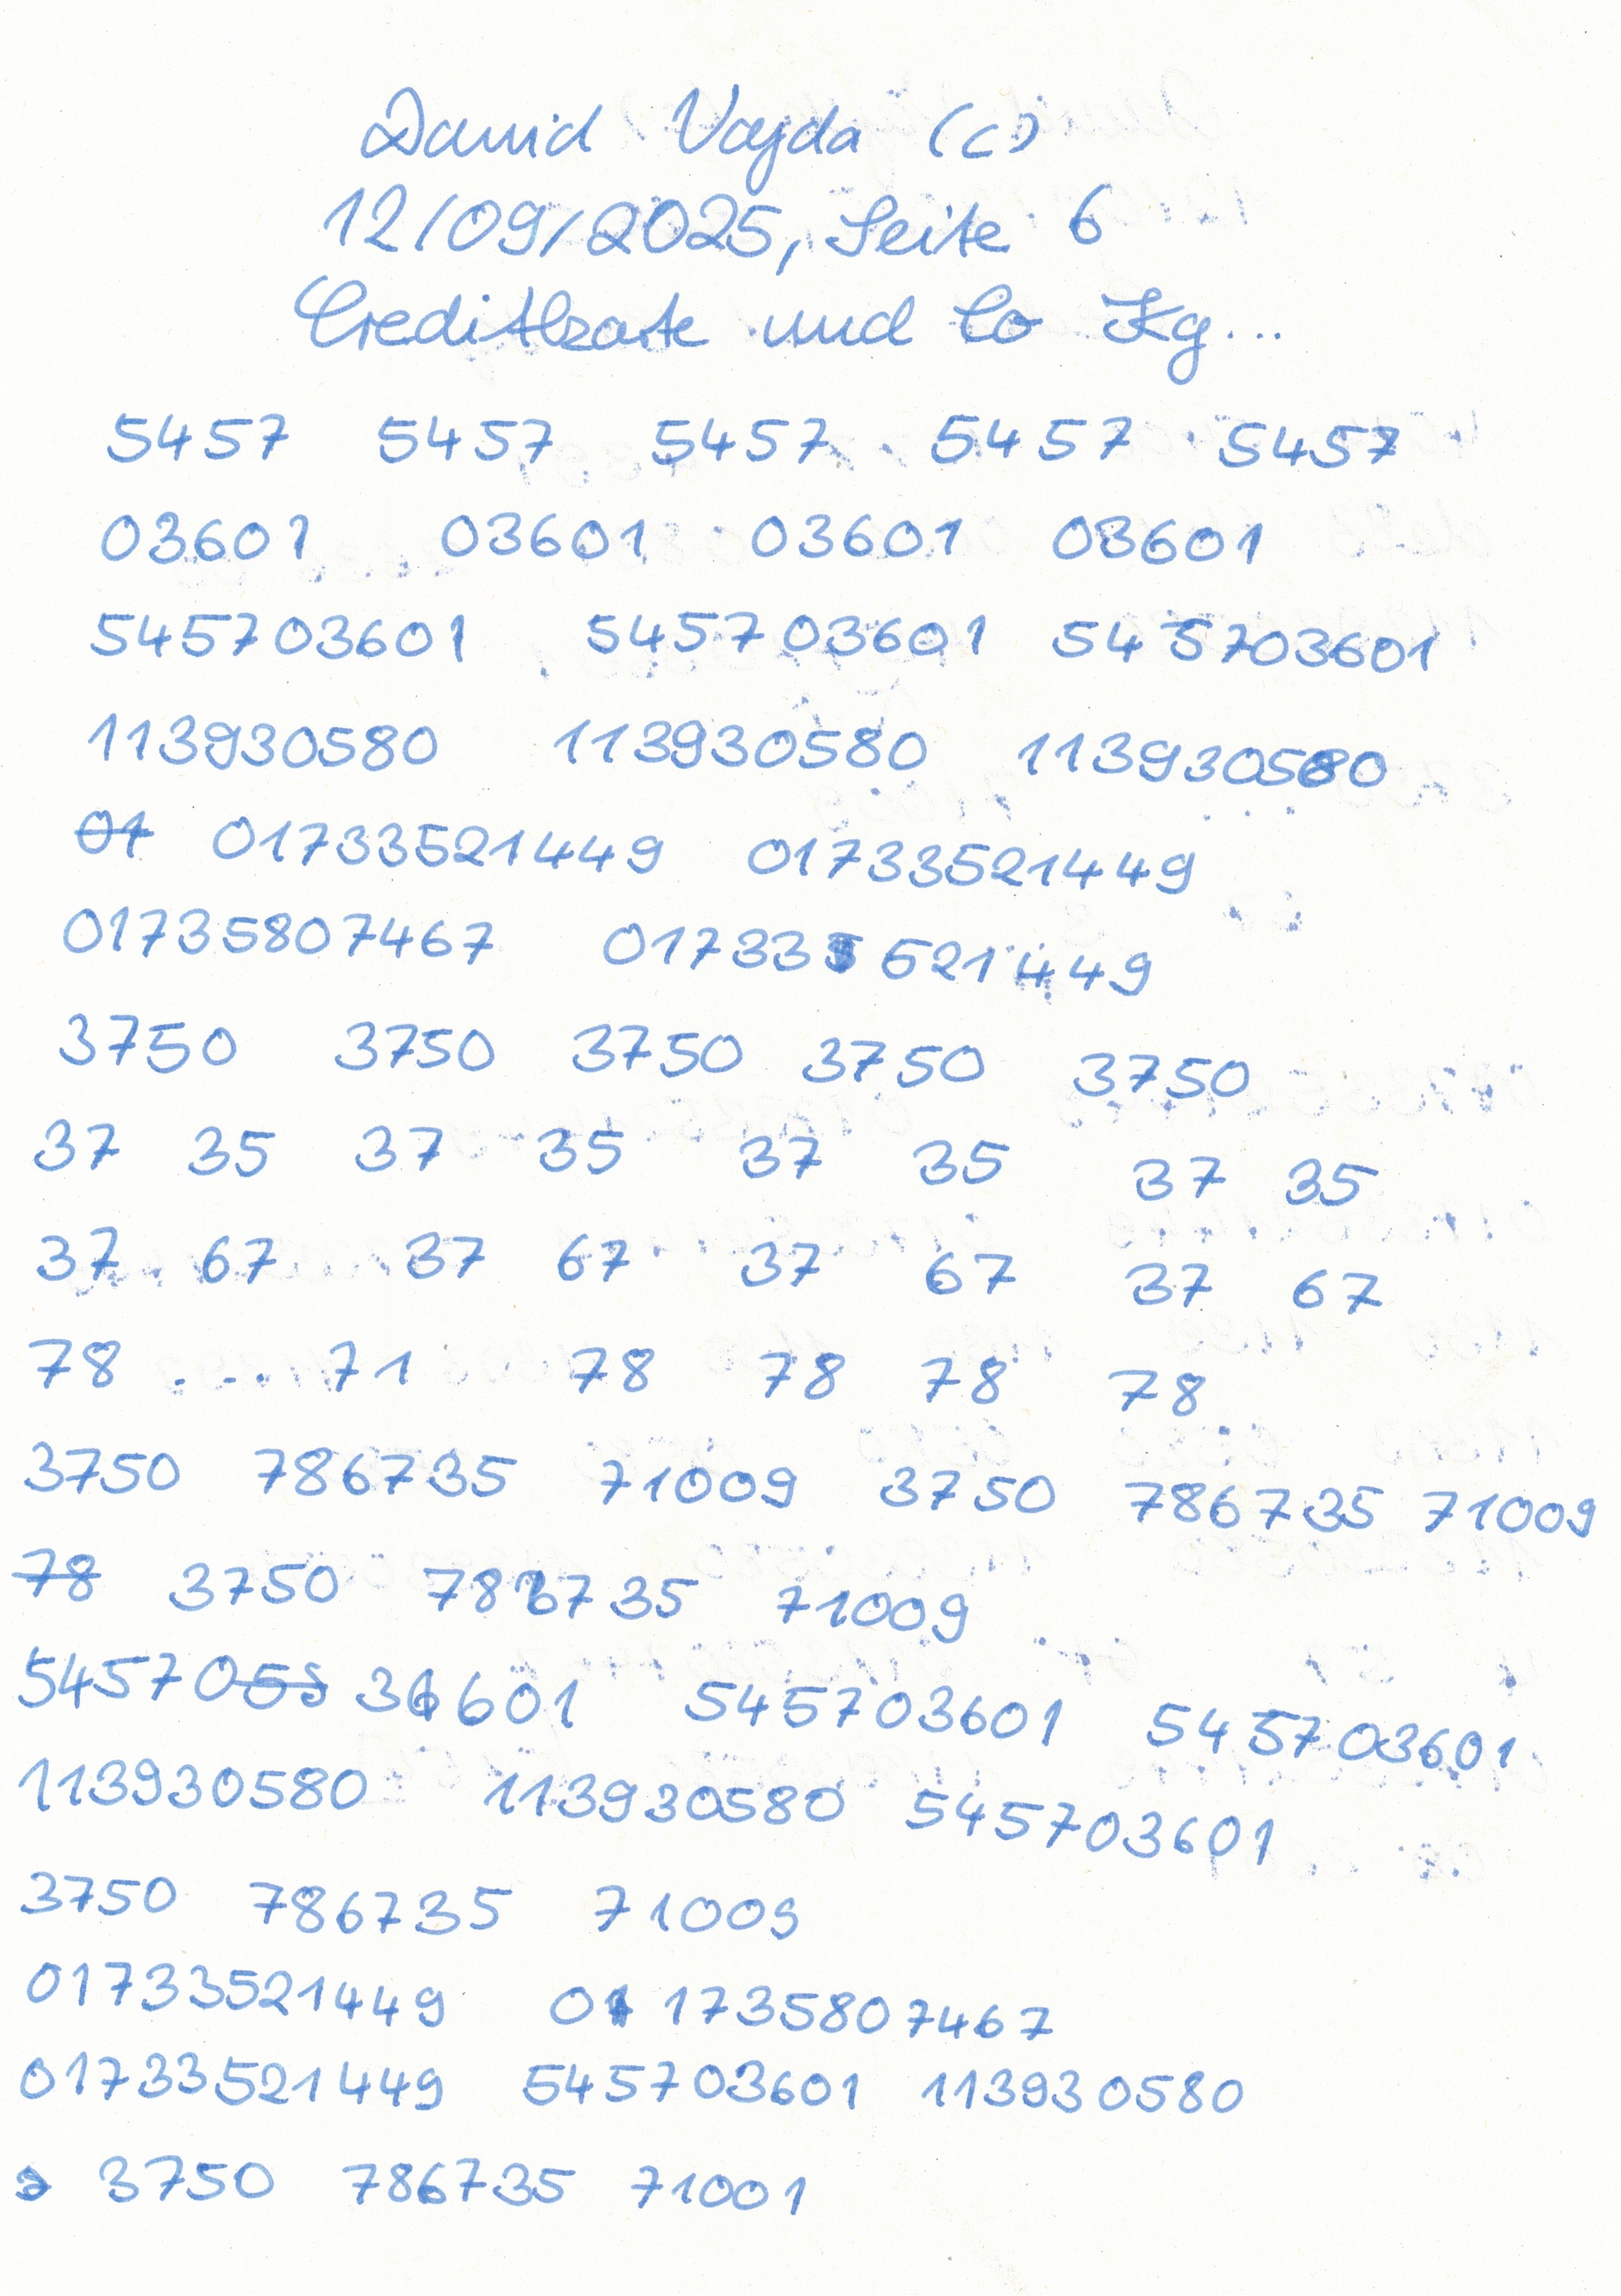 David Vajda (c)
12/09/2025, Seite 6
Creditkarte und Co Kg...
5457 5457 5457 5457 5457
03601 03601 03601 03601
545703601 545703601 545703601
113930580 113930580 113930580
01 01733521449 01733521449
01735807467 017333 521449
3750 3750 3750 3750 3750
37 35 37 35 37 35 37 35
37 67 37 67 37 67 37 67
78 ... 71 78 78 78 78
3750 786735 71009 3750 786735 71009
78 3750 786735 71009
54570 55 36601 545703601 545703601
113930580 113930580 545703601
3750 786735 71009
01733521449 01 1735807467
01733521449 545703601 113930580
3750 786735 71001